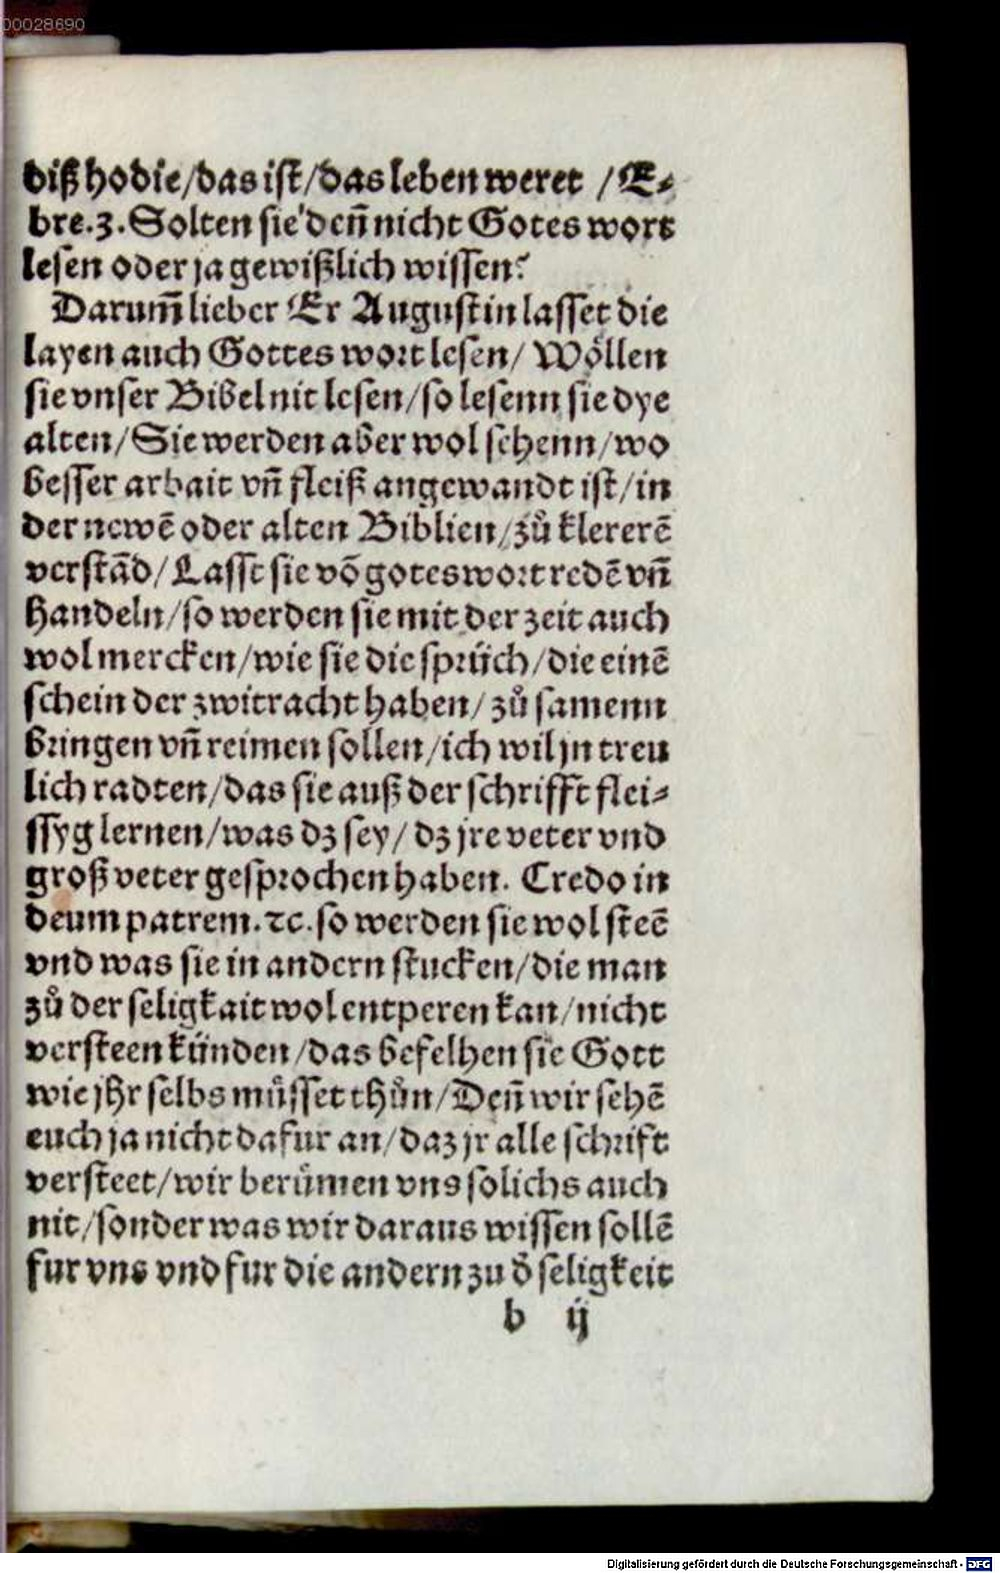 00028690
diß hodie/das ist/das leben weret /E⸗
bre.3. Solten sie deñ nicht Gotes wort
lesen oder ja gewißlich wissen?
Darum̃ lieber Er Augustin lasset die
layen auch Gottes wort lesen/ Wöllen
sie vnser Bibel nit lesen/so lesenn sie dye
alten/Sie werden aber wol sehenn/wo
besser arbait vñ fleiß angewandt ist/in
der newẽ oder alten Biblien/zů klererẽ
verstãd/Lasst sie võ gotes wort redẽ vñ
handeln/so werden sie mit der zeit auch
wol mercken/wie sie die sprüch/die einẽ
schein der zwitracht haben/zů samenn
bringen vñ reimen sollen/ich wil jn treu
lich radten/das sie auß der schrifft flei⸗
ssyg lernen/was dz sey/ dz jre veter vnd
groß veter gesprochen haben. Credo in
deum patrem.ꝛc. so werden sie wol steẽ
vnd was sie in andern stucken/die man
zů der seligkait wol entperen kan/nicht
versteen künden/das befelhen sie Gott
wie jhr selbs müsset thůn/Deñ wir sehẽ
euch ja nicht dafur an/daz jr alle schrift
versteet/wir berümen vns solichs auch
nit/sonder was wir daraus wissen sollẽ
fur vns vnd fur die andern zu d̃ seligkeit
b ij
Digitalisierung gefördert durch die Deutsche Forschungsgemeinschaft - DFG